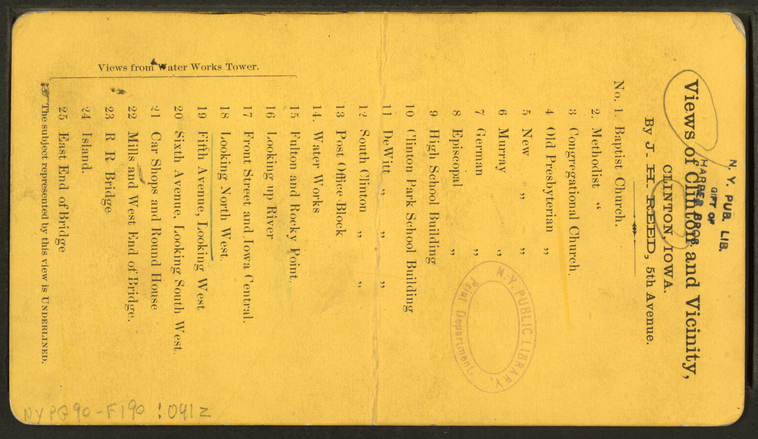 N. Y. PUB. LIB.
GIFT OF
HARPER BROS
Views of Clinton and Vicinity,
CLINTON, IOWA.
By J. H REED, 5th Avenue.
No. 1. Baptist Church.
2. Methodist "
3 Congregational Church.
4 Old Presbyterian „
5 New „ „
6 Murray „
7 German „
8 Episcopal „
9 High School Building
10 Clinton Park School Building
11 DeWitt „ „ „
12 South Clinton „ „
13 Post Office Block
14. Water Works
15 Fulton and Rocky Point.
16 Looking up River
17 Front Street and Iowa Central.
18 Looking North West
19 Fifth Avenue, Looking West
20 Sixth Avenue, Looking South West
21 Car Shops and Round House
22 Mills and West End of Bridge.
23 R R Bridge
24 Island.
25 East End of Bridge
Views from Water Works Tower.
The subject represented by this view is UNDERLINED.
N.Y. PUBLIC LIBRARY.
Print Department
NYPG90-F190 : 041Z